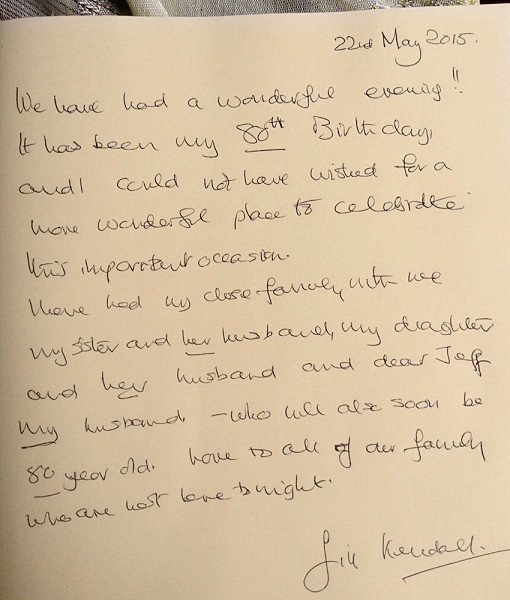 22nd May 2015.
We have had a wonderful evening!!
It has been my 80th Birthday,
and I could not have wished for a
more wonderful place to celebrate
this important occasion.
I have had my close family with me
my sister and her husband, my daughter
and her husband and dear Jeff
my husband - who will also soon be
80 year old. Love to all of our family
who are not here tonight.
Jill Kendall.